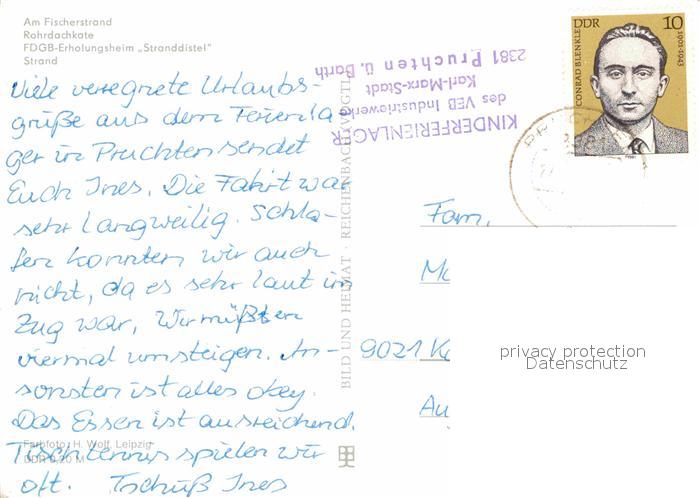 Am Fischerstrand
Rohrdachkate
FDGB-Erholungsheim „Stranddistel"
Strand
Viele verregnete Urlaubs-
grüße aus dem Ferienla-
ger in Pruchten sendet
Euch Ines. Die Fahrt war
sehr langweilig. Schla-
fen konnten wir auch
nicht, da es sehr laut im
Zug war. Wir müßten
viermal umsteigen. An-
sonsten ist alles okey.
Das Essen ist ausreichend.
Tischtennis spielen wir
oft. Tschüß Ines
Farbfoto: H. Wolf, Leipzig
DDR 0,20 M
BILD UND HEIMAT · REICHENBACH (VOGTL)
KINDERFERIENLAGER
des VEB Industriewerke
Karl-Marx-Stadt
2381 Pruchten ü. Barth
DDR 10
CONRAD BLENKLE
1901-1943
Fam.
9021
privacy protection
Datenschutz